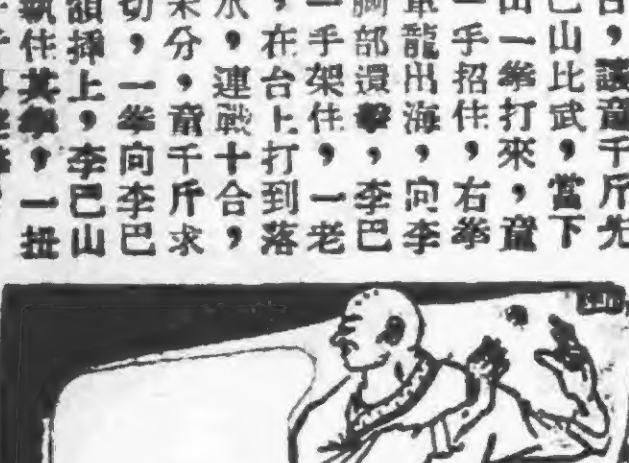 台，讓童千斤先
巴山比武，當下
出一拳打來，童
一手招住，右拳
龍出海，向李
胸部還擊，李巴
一手架住，一老
，在台上打到落
水，連戰十合，
未分，童千斤求
切，一拳向李巴
額揷上，李巴山
執住其拳，一扭